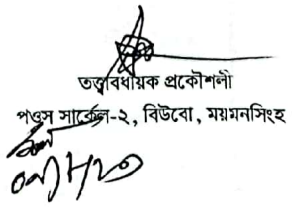 তত্ত্বাবধায়ক প্রকৌশলী
পওস সার্কেল-২, বিউবো, ময়মনসিংহ